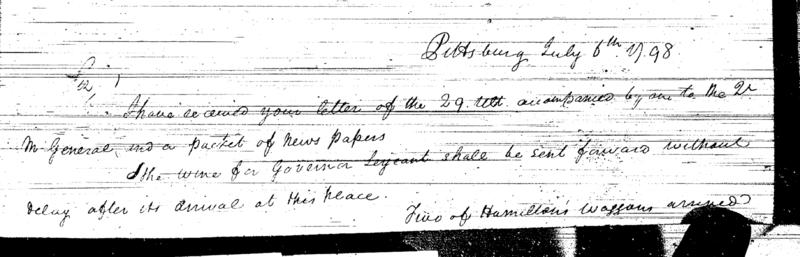 Pittsburg July 6th 1798
Sir,
I have received your letter of the 29 ult. accompanied by one to the Qr
Mr General, and a packet of News Papers
The wine for Governor Serjeant shall be sent forward without
delay after its arrival at this place.
Two of Hamilton's waggons arrived